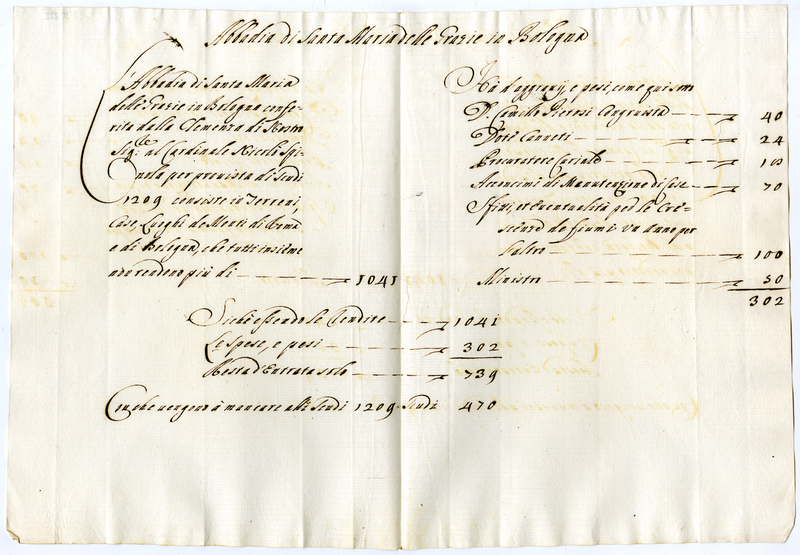 Abbadia di Santa Maria delle Grazie in Bologna
L'Abbadia di Santa Maria
delle Grazie in Bologna confe-
rita dalla Clemenza di Nostro
Sigre al Cardinale Nicolò Spi-
nola per provista di Scudi
1209 consiste in Terreni,
Case, Luoghi de Monti di Roma
e di Bologna, che tutti insieme
non rendono più di 1041
Hà d'aggravj, e pesi, come qui sotto
D. Camillo Congruista 40
Dote Canneti 24
Procuratore Curiale 18
Acconcimi di Manutenzione di Case 70
Sfitti, et eventualità per le Cre-
scienze de fiumi un anno per
l'altro 100
Ministro 50
302
Siche essendo le Rendite 1041
Le spese, e pesi 302
Resta d'Entrata solo 739
Con che vengono à mancare alli Scudi 1209 Scudi 470